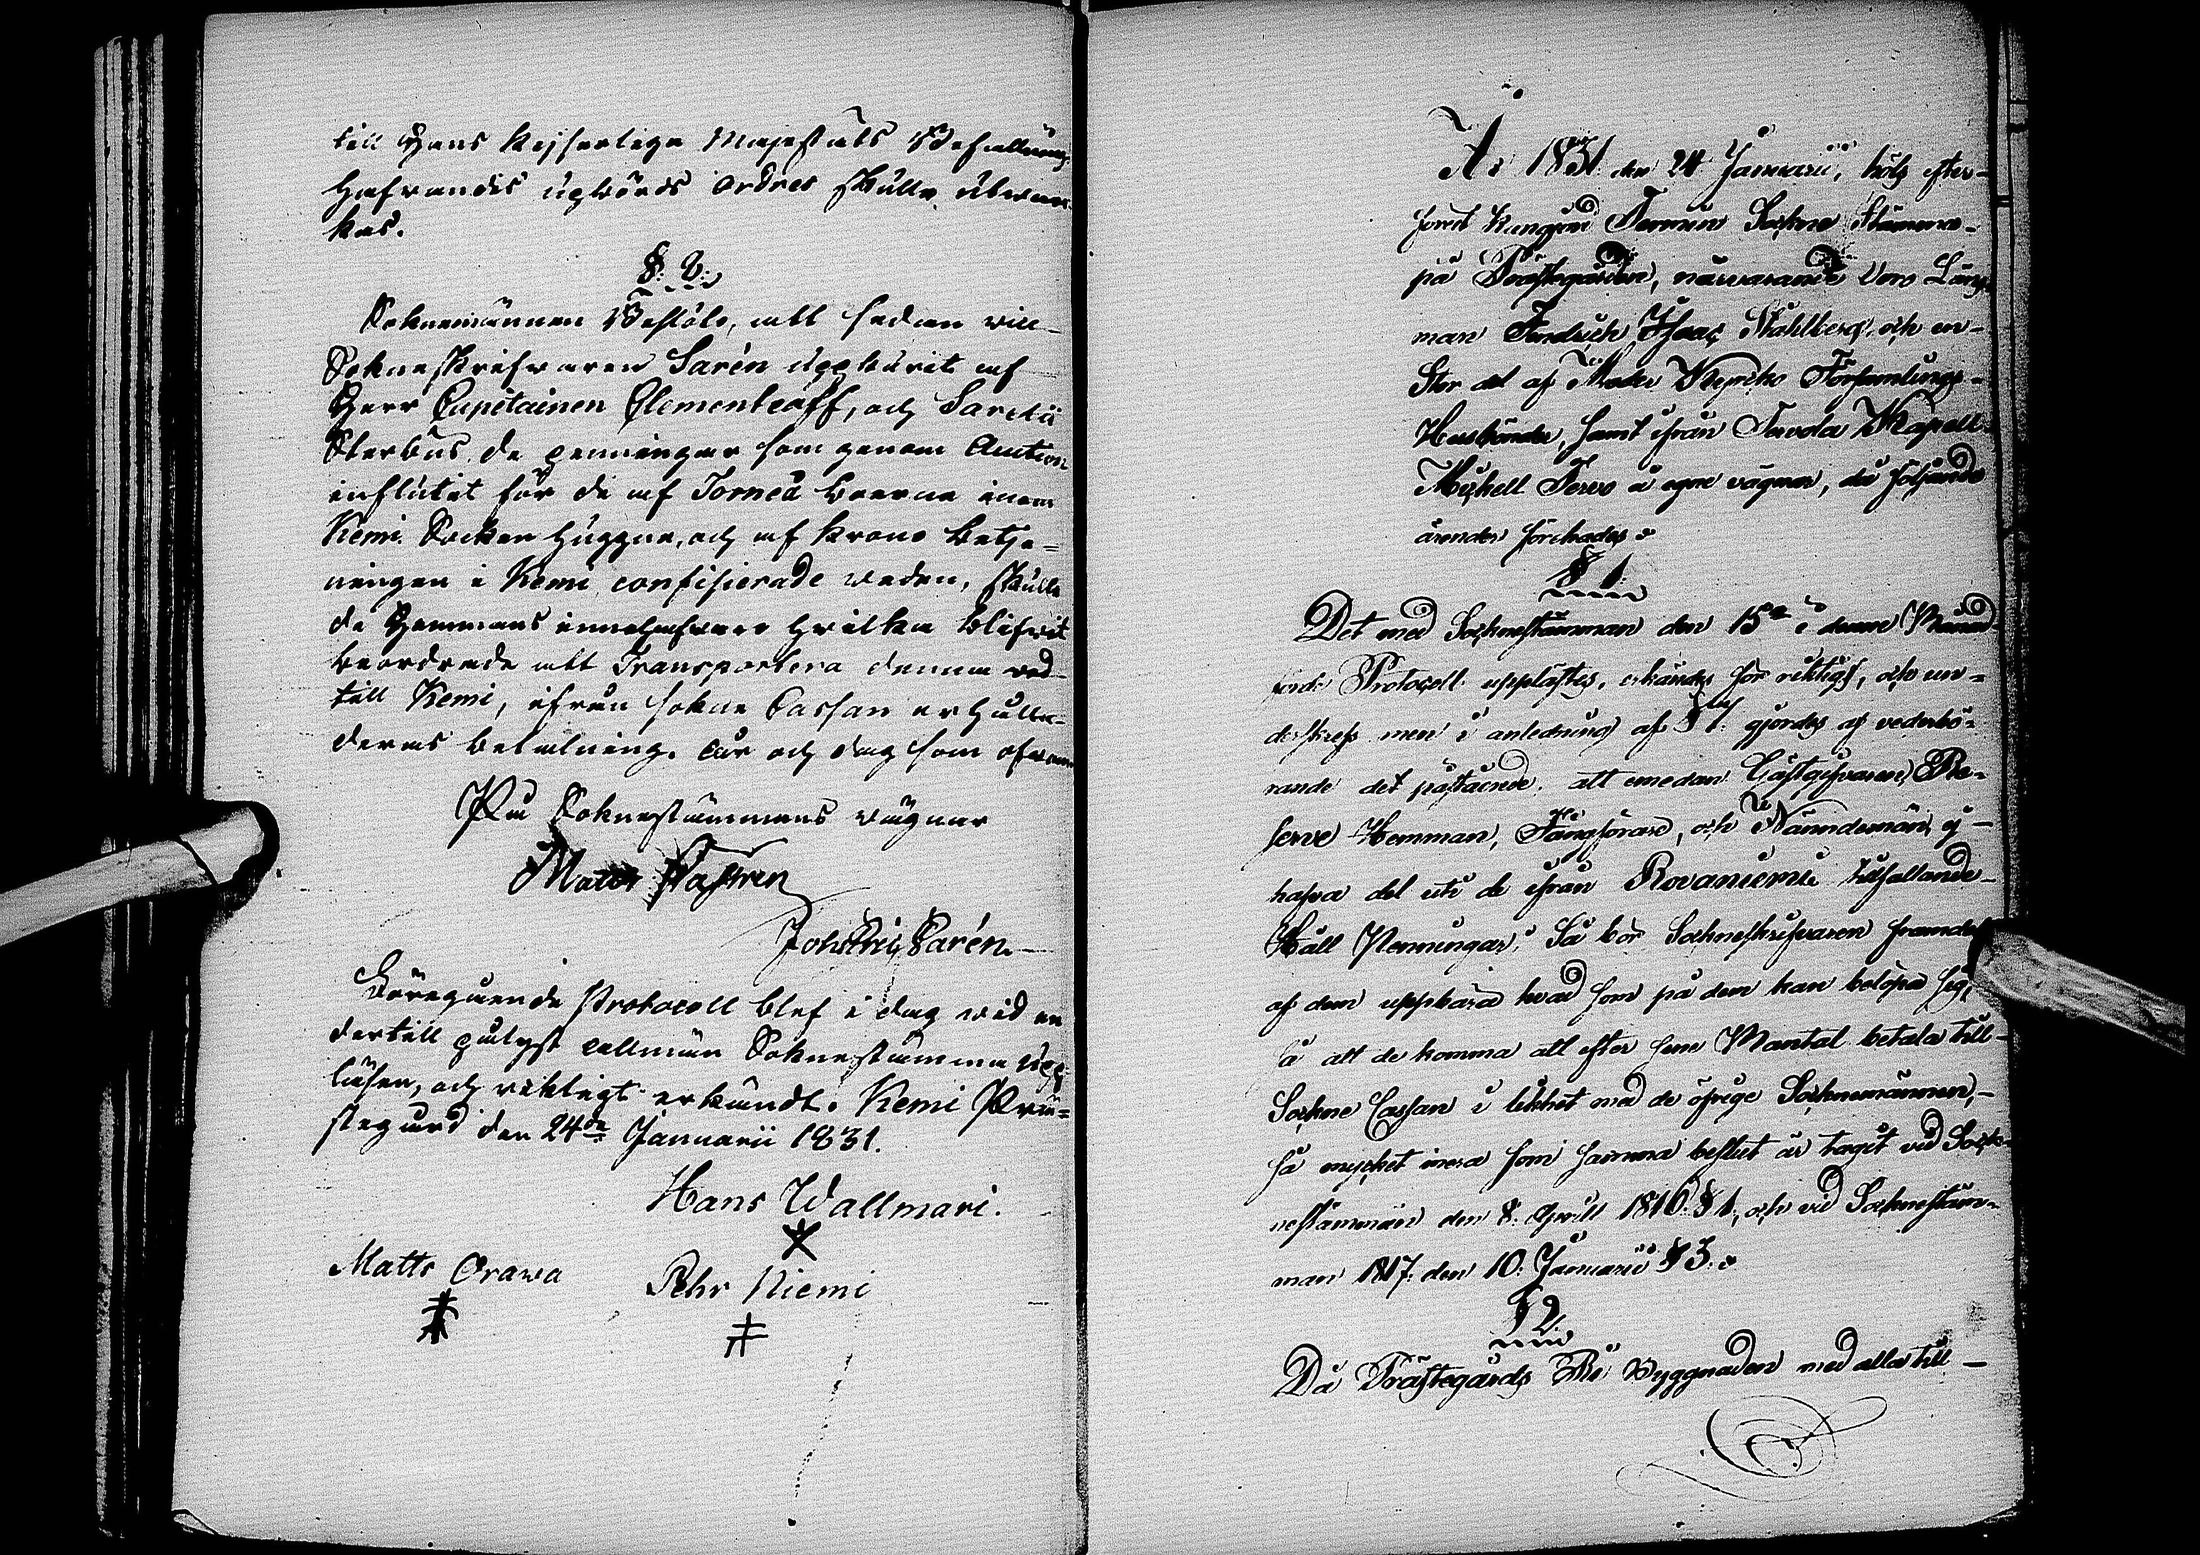 till Hans Kejserliga Majestäts Befallnings
hafvandis utgåends ordres skulle utwer-
kas.
§. 8.
Soknemännen Beslöto, att sedan
Sokneskrifwaren Sarén uppburit af
Herr Capitainen Clementeoff, och Sarelii
Sterbus de penningar som genom Auction
influtit för de af Torneå boerne inom
Kemi Socken huggne, och af Krono betje-
ningen i Kemi confisierade weden, skulle
de Hemmans innehafware hvilka blifwit
beordrade att Transportera denna wed
till Kemi, ifrån sokne Cassan erhålla
deras betalning. År och dag som ofwan
På Soknestämmans wägnar
Matts Castren
Joh: Sarén
Föregående Protocoll blef i dag wid en
dertill pålyst allmän Soknestämma upp-
läsen, och riktigt erkändt. Kemi Prä-
stegård den 24de Januarii 1831.
Hans Wallmari.
Matts Orawa
Pehr Niemi
År 1831 den 24 Januarii, hölts efter
förut kungjord Termin Sockne Stämma
på Prästegården, närvarande voro Läns-
man Isaac Ståhlberg, och en
Stor del af Moder Kyrcko Församlings
Husbönder, samt ifrån Tervola Kapell
Michell Tervo å egne vägnar, då följande
ärender förehades.
§ 1.
Det med Socknestämman den 15de i denne Månad
förde Protocoll upplästes, erkändes för riktigt, och un-
derskrefs men i anledning af § 1 gjordes af vederbö-
rande det påstående, att emedan Gästgifvaren, Re-
serve Hemman, Fångförare, och Nämndemän, ej
hafva del uti de ifrån Rovaniemi tillfallande
Håll Penningar, Så bör Sockneskrifvaren framdeles
af dem uppbära hvad som på dem kan belöpa sig,
så att de komma att efter sine Mantal betala till
Sockne Cassan i likhet med de öfrige Socknemännen,
så mycket mera som samma beslut är tagit vid Sock-
nestämman den 8. Aprill 1816. § 1, och vid Socknestäm-
man 1817. den 10. Januarii § 3.
§ 2.
Då Prästegårds Byggnaden med alla till